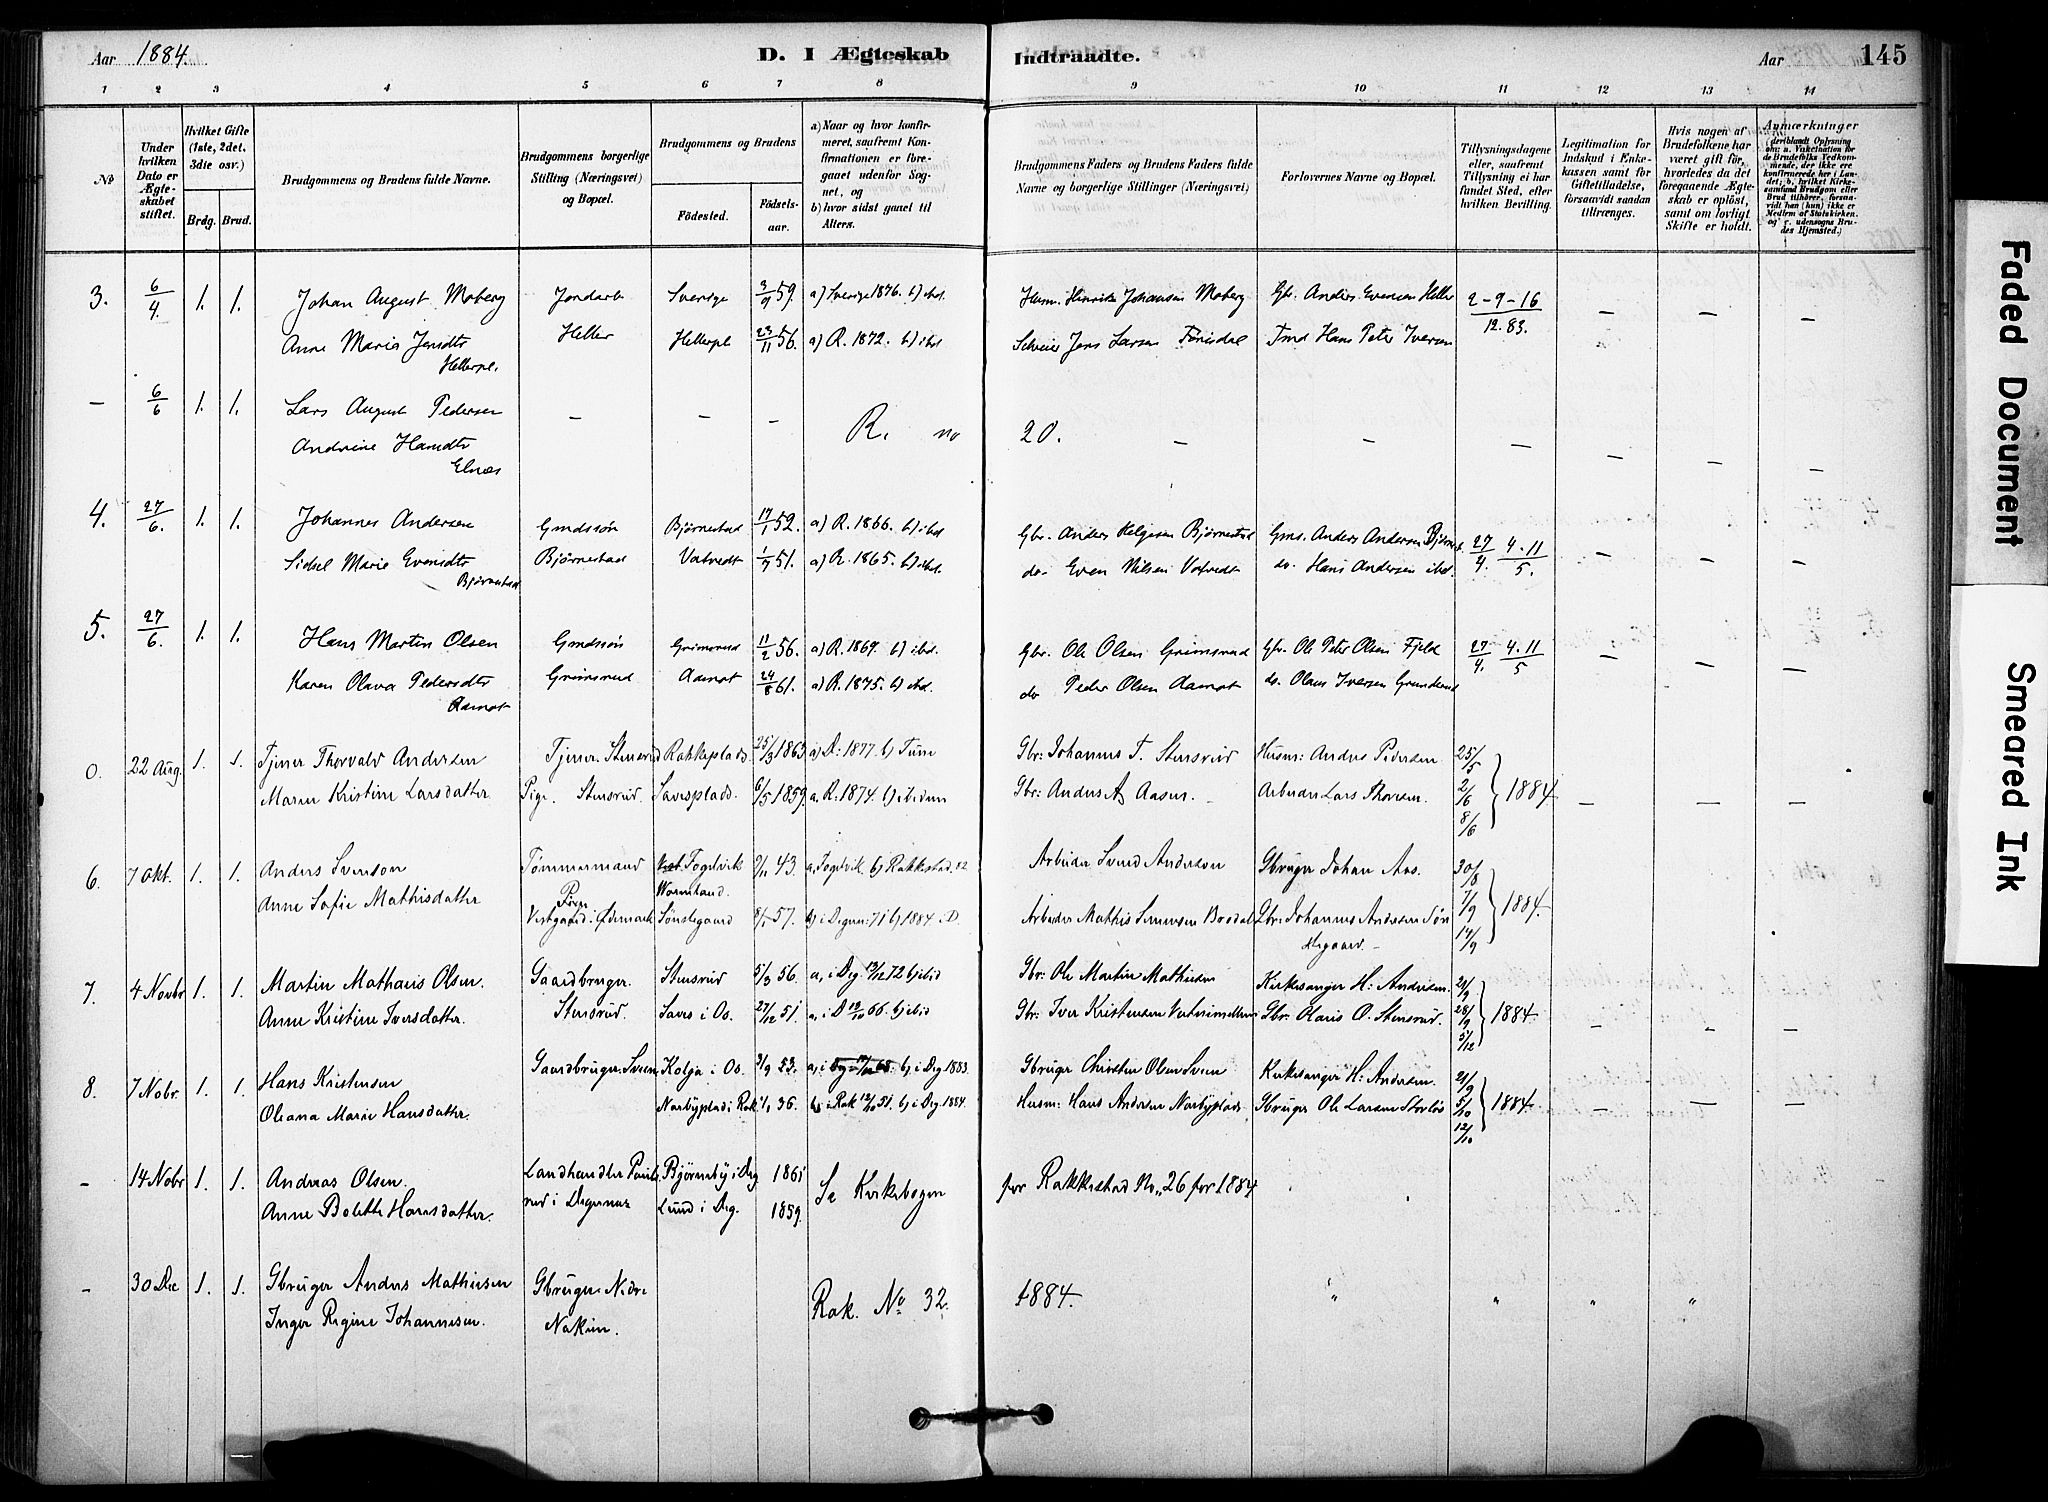 Aar 1884.
D. I Ægteskab Indtraadte.
Aar 145
1 2 3 4 5 6 7 8 9 10 11 12 13 14
No
Under hvilken Dato er Ægteskabet stiftet.
Hvilket Gifte (1ste, 2det, 3die osv.)
Brdg. Brud.
Brudgommens og Brudens fulde Navne.
Brudgommens borgerlige Stilling (Næringsvei) og Bopæl.
Brudgommens og Brudens
Födested. Födsels-aar.
a) Naar og hvor konfirmeret, saafremt Konfirmationen er foregaaet udenfor Sognet, og
b) hvor sidst gaaet til Alters.
Brudgommens Faders og Brudens Faders fulde Navne og borgerlige Stillinger (Næringsvei)
Forlovernes Navne og Bopæl.
Tillysningsdagene eller, saafremt Tillysning ei har fundet Sted, efter hvilken Bevilling.
Legitimation for Indskud i Enkekassen samt for Giftetilladelse, forsaavidt saadan tiltrænges.
Hvis nogen af Brudefolkene har været gift før, hvorledes da det foregaaende Ægteskab er oplöst, samt om lovligt Skifte er holdt.
Anmærkninger (deriblandt Oplysning om: a. Vaksination for de Brudefolks Vedkommende, der ikke ere konfirmerede her i Landet; b. hvilket Kirkesamfund Brudgom eller Brud tilhører, forsaavidt han (hun) ikke er Medlem af Statskirken, og c. udensogns Brudes Hjemsted.)
3. 6/4. 1. 1. Johan August Moberg Jordarb Sverige 3/9 59. a) Sverige 1876. b) ibd. Husm. Henrik Johansen Moberg Gbr. Anders Evensen Heller 2-9-16/12.83. – – –
Anne Marie Jensdtr Heller Hellerpl 23/11 56. a) R. 1872. b) ibd Jens Larsen Hans Peter Iversen
Hellerpl.
– 6/6 1. 1. Lars August Pedersen – – – R. no 20. – – – – – –
Andrine Hansdtr
Elnæs
4. 27/6. 1. 1. Johannes Andersen Gmdssøn Bjørnestad 17/1 52. a) R. 1866. b) ibd Gbr. Anders Helgesen Bjørnestad Gms. Anders Andersen Bjørnest. 27/4. 4.11/5. – – –
Sidsel Marie Evensdtr Bjørnestad Vatvedt 1/7 51. a) R. 1865. b) ibd. do. Even Nilsen Vatvedt do. Hans Andersen ibd.
Bjørnestad
5. 27/6. 1. 1. Hans Martin Olsen Gmdssøn Grimsrud 11/2 56. a) R. 1869. b) ibd. Gbr. Ole Olsen Grimsrud Gbr. Ole Peter Olsen Fjeld 27/4. 4.11/5 – – –
Karen Olava Pedersdtr Grimsrud Aamot 24/8 61. a) R. 1875. b) ibd. do Peder Olsen Aamot do. Olaus Iversen
Aamot
0. 22 Aug. 1. 1. Tjener Thorvald Andersen Tjener Stensrud Rakkeplads. 25/3 1863 a) D: 1877 b) Tune Gbr: Johannes T. Stensrud Husm: Anders Pedersen. 25/5
Maren Kristine Larsdatter. Pige. Stensrud. Savesplads. 6/5 1859. a. R. 1874. b) ibidem Gbr: Anders A Aasen. Arbeider Lars Thoresen. 2/6 1884. – – –
8/6
6. 7 Okt. 1. 1. Anders Svenson Tømmermand Fogelvik 9/11 43. a, Fogelvik b) Rakkestad 82 Arbeider Svend Anderson Gbruger Johan Aas. 30/8
Pige Wermland. 7/9 1884.
Anne Sofie Mathisdatter Vestgaard i Ødemark Sønstegaard 57. b) i Degernes 71 b) 1884 i D. Arbeider Mathis Gbr: Johannes Andersen Søn 14/9
stegaard. –
7. 4 Novbr 1. 1. Martin Mathæus Olsen. Gaardbruger. Stensrud 5/3 56 a, i Deg 72 b) ibid Gbr: Ole Martin Mathisen Kirkesanger H: Andersen. 21/9
Anne Kristine Iversdatter. Stensrud. Saves i Os. 27/12 51. a, i D 66 b) ibid Gbr: Iver Kristensen Gbr: Olaus O. Stensrud. 28/9 1884. – – –
5/12
8. 7 Nobr. 1. 1. Hans Kristensen Gaardbruger. Sveen Kolja i Os. 9/9 53. a, i Deg 68. b, i Deg 1883. Gbruger Christen Olsen Sveen Kirkesanger H: Andersen. 21/9
Oleana Marie Hansdatter. Norbyplads i Rak 1/1 36. b, i Rak 51. b) i Deg. 1884. Husm: Hans Andersen Norbyplads. Gbruger Ole Larsen 5/10 1884. – – –
12/10
– 14 Nobr 1. 1. Andreas Olsen. Landhandler Bjørneby i Deg 1861 Se Kirkebogen for Rakkestad No. 26 for 1884
Anne Bolette Hansdatter. rud i Degernæs Lund i Deg. 1859.
– 30 Dec 1. 1. Gbruger Anders Mathisen Gbruger. Nedre Rak. No 32. 1884. " " " "
Inger Regine Johannesen. Nakim.
Faded Document
Smeared Ink